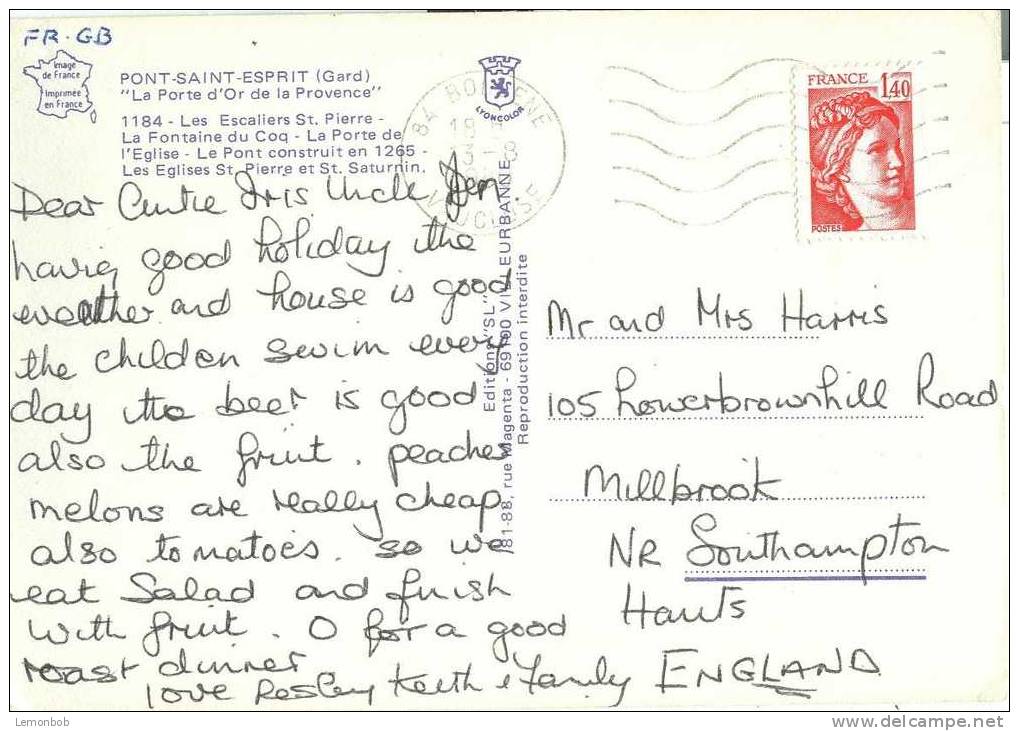 FR-GB
Image
de France
Imprimée
en France
PONT-SAINT-ESPRIT (Gard)
"La Porte d'Or de la Provence"
1184 - Les Escaliers St. Pierre -
La Fontaine du Coq - La Porte de
l'Eglise - Le Pont construit en 1265 -
Les Eglises St. Pierre et St. Saturnin.
LYONCOLOR
84 BOLLENE
VAUCLUSE
FRANCE
1,40
POSTES
Dear Iris Uncle
having good holiday the
weather and house is good
the childen swim every
day the beer is good
also the fruit. peaches
melons are really cheap
also tomatoes. so we
eat Salad and finish
with fruit. O for a good
roast dinner
love Keith & family
Editions "SL"
81-88, rue Magenta - 69100 VILLEURBANNE
Reproduction interdite
Mr and Mrs Harris
105 Lowerbrownhill Road
Millbrook
NR Southampton
Hants
ENGLAND
Lemonbob
delcampe.net